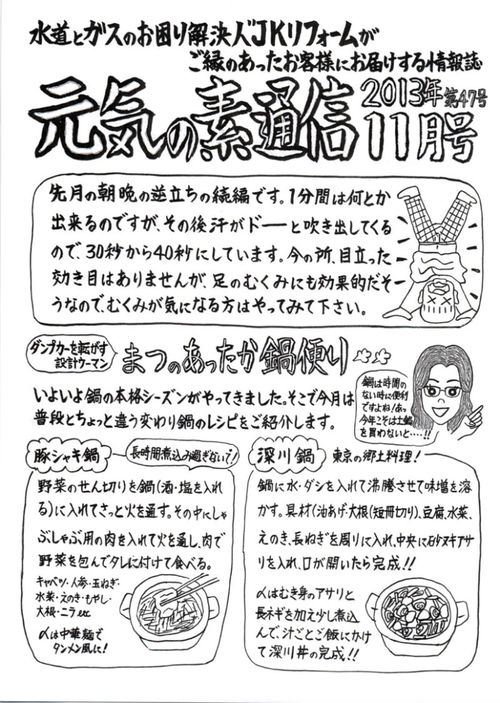 水道とガスのお困り解決人"JKリフォームが
ご縁のあったお客様にお届けする情報誌
元気の素通信
2013年 第47号
11月号
先月の朝晩の逆立ちの続編です。1分間は何とか
出来るのですが、その後汗がドーーと吹き出してくる
ので、30秒から40秒にしています。今の所、目立った
効き目はありませんが、足のむくみにも効果的だそ
うなので、むくみが気になる方はやってみて下さい。
ダンプカーを転がす
設計ウーマン
まつのあったか鍋便り
鍋は時間の
ない時に便利
ですよね!あっ
今年こそは土鍋
を買わないと…!!
いよいよ鍋の本格シーズンがやってきました。そこで今月は
普段とちょっと違う変わり鍋のレシピをご紹介します。
豚シャキ鍋
長時間煮込み過ぎないで!
野菜のせん切りを鍋(酒・塩を入れ
る)に入れてさっと火を通す。その中にしゃ
ぶしゃぶ用の肉を入れて火を通し、肉で
野菜を包んでタレに付けて食べる。
キャベツ・人参・玉ねぎ・
水菜・えのき・もやし・
大根・ニラ etc
〆は中華麺で
タンメン風に!
深川鍋
東京の郷土料理!
鍋に水・ダシを入れて沸騰させて味噌を溶
かす。具材(油あげ・大根(短冊切り)、豆腐、水菜、
えのき、長ねぎを周りに入れ、中央に砂ヌキアサ
リを入れ、口が開いたら完成!!
〆はむき身のアサリと
長ネギを加え少し煮込
んで、汁ごとご飯にかけ
て深川丼の完成!!